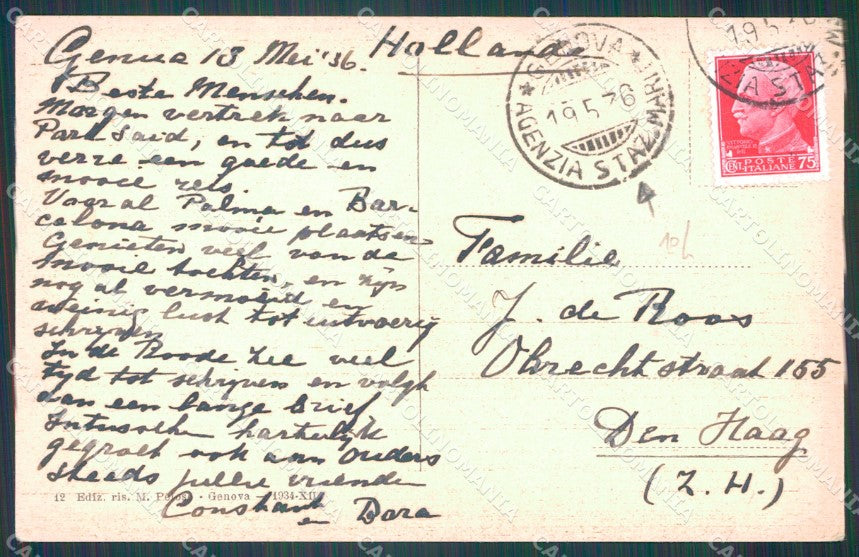 Genua 13 Mei '36.
Hollande
Beste Menschen.
Morgen vertrek naar
Port Said, en tot dus
verre een goede en
mooie reis.
Vooral Palma en Bar-
celona mooie plaatsen
Genieten veel van de
mooie tochten, en zijn
nog al vermoeid en
weinig lust tot uitvoerig
schrijven.
In de Roode Zee veel
tyd tot schrijven en volgt
dan een lange brief
Intusschen hartelijk
gegroet ook aan Ouders
steeds jullie vrienden
Constant
en Dora
12 Ediz. ris. M. - Genova - 1934-XII
GENOVA
AGENZIA STAZ. MARITT
19.5.36
19.5.36
POSTE
ITALIANE
CENT. 75
10L
Familie
J. de Roos
Obrechtstraat 155
Den Haag
(Z.H.)
CARTOLINOMANIA